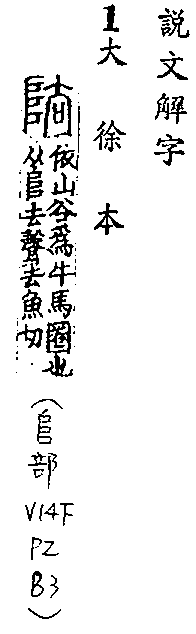 説文解字
1大徐本
阹
依山谷爲牛馬圈也
从𨸏去聲去魚切
(𨸏部
V14下
P2
B3)